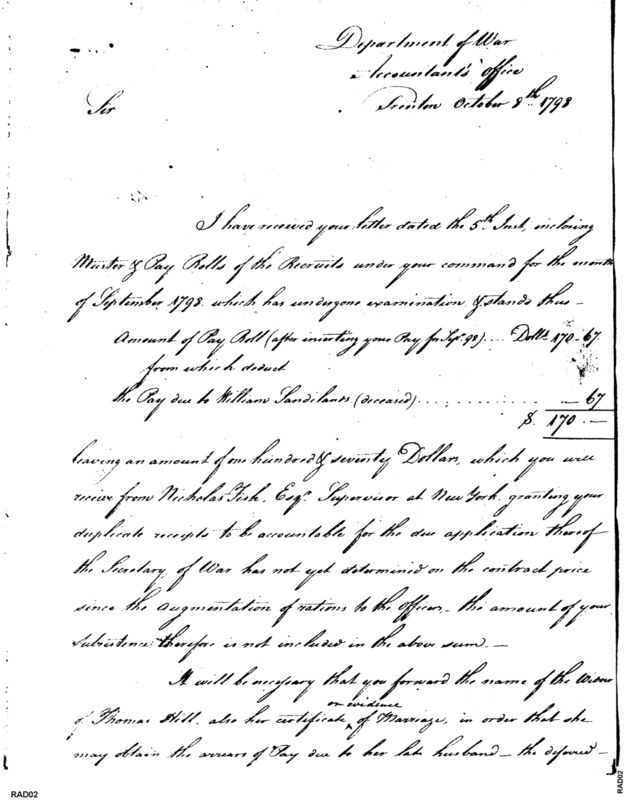 Department of War
Accountant's office
Trenton October 8th 1798
Sir
I have received your letter dated the 5th Inst, inclosing
Muster & Pay Rolls of the Recruits under your command for the month
of September 1798 which has undergone examination & stands thus—
Amount of Pay Roll (after inserting your Pay for Sept. 98) .... Dolls 170-67.
from which deduct
the Pay due to William Sandilands (deceased) .............. — 67
$. 170.—
leaving an amount of one hundred & seventy Dollars, which you will
receive from Nicholas Fish, Esqr. Supervisor at New York, granting your
duplicate receipts to be accountable for the due application thereof
the Secretary of War has not yet determined on the contract price
since the augmentation of rations to the officers,— the amount of your
subsistence therefore is not included in the above sum.—
It will be necessary that you forward the name of the Widow
or evidence
of Thomas Hill. also her certificate ^ of Marriage, in order that she
may obtain the arrears of Pay due to her late husband — the
RAD02
RAD02